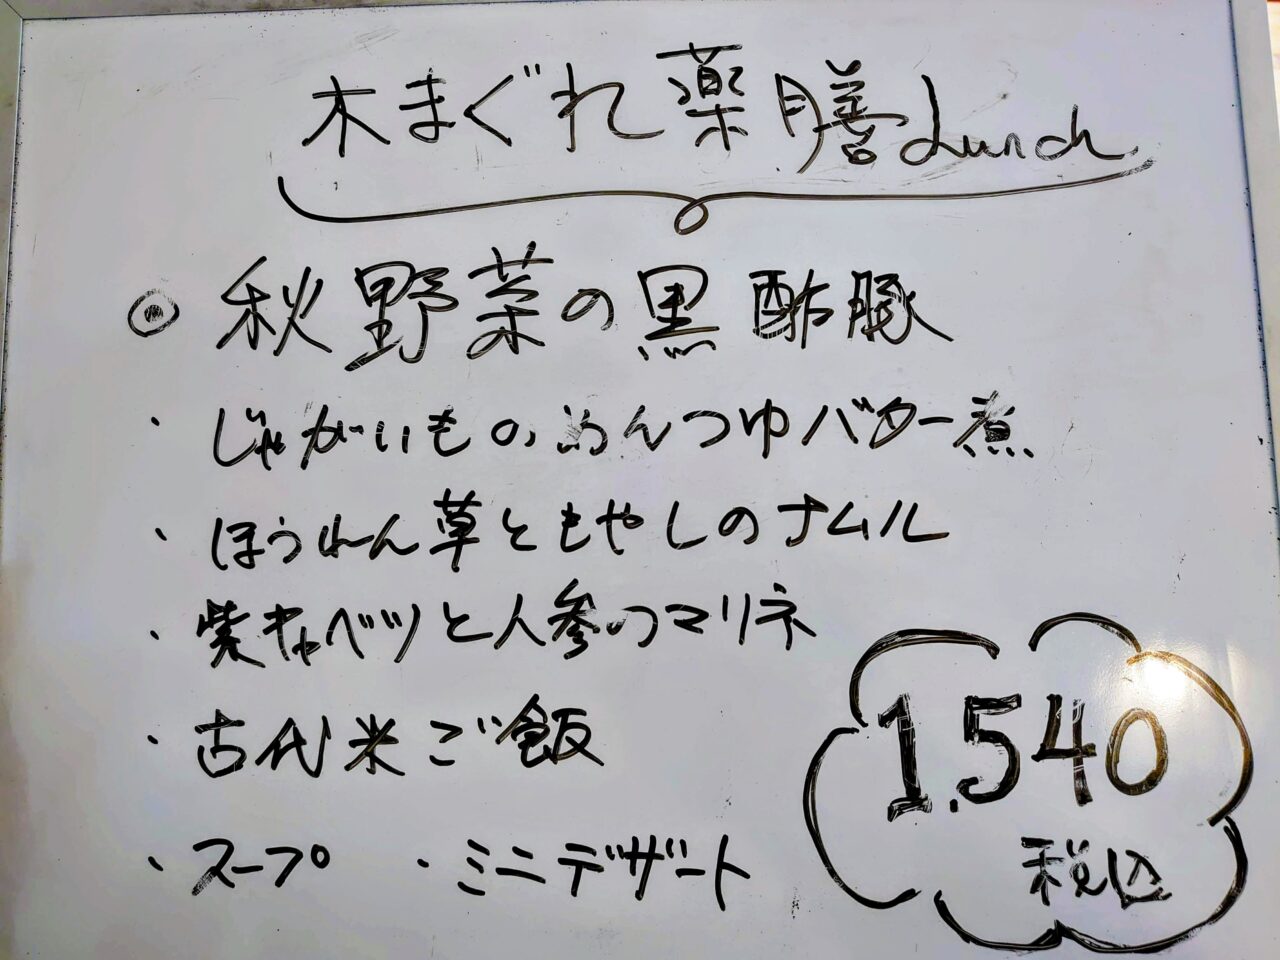 木まぐれ薬膳Lunch
◎ 秋野菜の黒酢豚
・じゃがいものめんつゆバター煮
・ほうれん草ともやしのナムル
・紫キャベツと人参のマリネ
・古代米ご飯
・スープ ・ミニデザート
1.540
税込